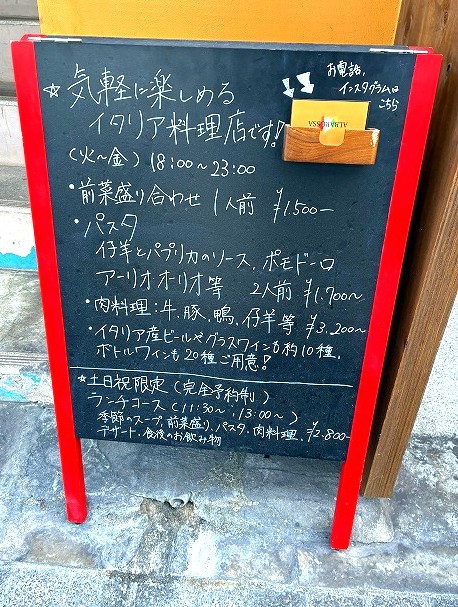 お電話、
インスタグラムは
こちら
☆気軽に楽しめる
イタリア料理店です!
ALBAROSSA
(火~金) 18:00~23:00
・前菜盛り合わせ 1人前 ¥1.500-
・パスタ
仔羊とパプリカのソース、ポモドーロ
アーリオオーリオ等 2人前 ¥1.700~
・肉料理:牛、豚、鴨、仔羊等 ¥3.200~
・イタリア産ビールやグラスワインも約10種、
ボトルワインも20種ご用意!
☆土日祝限定(完全予約制)
ランチコース(11:30~、13:00~)
季節のスープ、前菜盛り、パスタ、肉料理、¥2.800-
デザート、食後のお飲み物